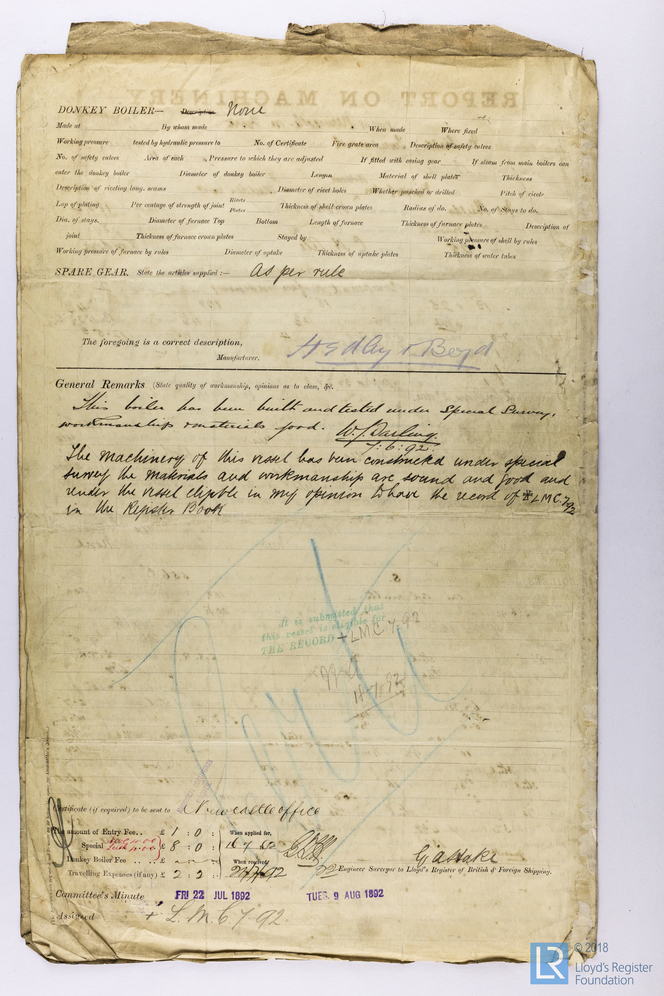 DONKEY BOILER— Description None
Made at By whom made When made Where fixed
Working pressure tested by hydraulic pressure to No. of Certificate Fire grate area Description of safety valves
No. of safety valves Area of each Pressure to which they are adjusted If fitted with easing gear If steam from main boilers can
enter the donkey boiler Diameter of donkey boiler Length Material of shell plates Thickness
Description of riveting long. seams Diameter of rivet holes Whether punched or drilled Pitch of rivets
Lap of plating Per centage of strength of joint Rivets Plates Thickness of shell crown plates Radius of do. No. of Stays to do.
Dia. of stays. Diameter of furnace Top Bottom Length of furnace Thickness of furnace plates Description of
joint Thickness of furnace crown plates Stayed by Working pressure of shell by rules
Working pressure of furnace by rules Diameter of uptake Thickness of uptake plates Thickness of water tubes
SPARE GEAR. State the articles supplied:— As per rule
The foregoing is a correct description,
Manufacturer. Hedley & Boyd
General Remarks (State quality of workmanship, opinions as to class, &c.
This boiler has been built and tested under Special Survey,
workmanship & materials good. W. J. Darling
7.6.92.
The machinery of this vessel has been constructed under special
survey the materials and workmanship are sound and good and
render the vessel eligible in my opinion to have the record of + LMC 7/92
in the Register Book
It is submitted that
this vessel is eligible for
THE RECORD + LMC 7.92
Certificate (if required) to be sent to Newcastle office
The amount of Entry Fee.. £ 1 : 0 : When applied for,
Special £ 8 : 0 :
Donkey Boiler Fee .. .. £ When received,
Travelling Expenses (if any) £ 2 : 2 :
Engineer Surveyor to Lloyd's Register of British & Foreign Shipping.
Committee's Minute FRI 22 JUL 1892 TUES. 9 AUG 1892
Assigned + L.M.C 7.92
© 2018
Lloyd's Register
Foundation